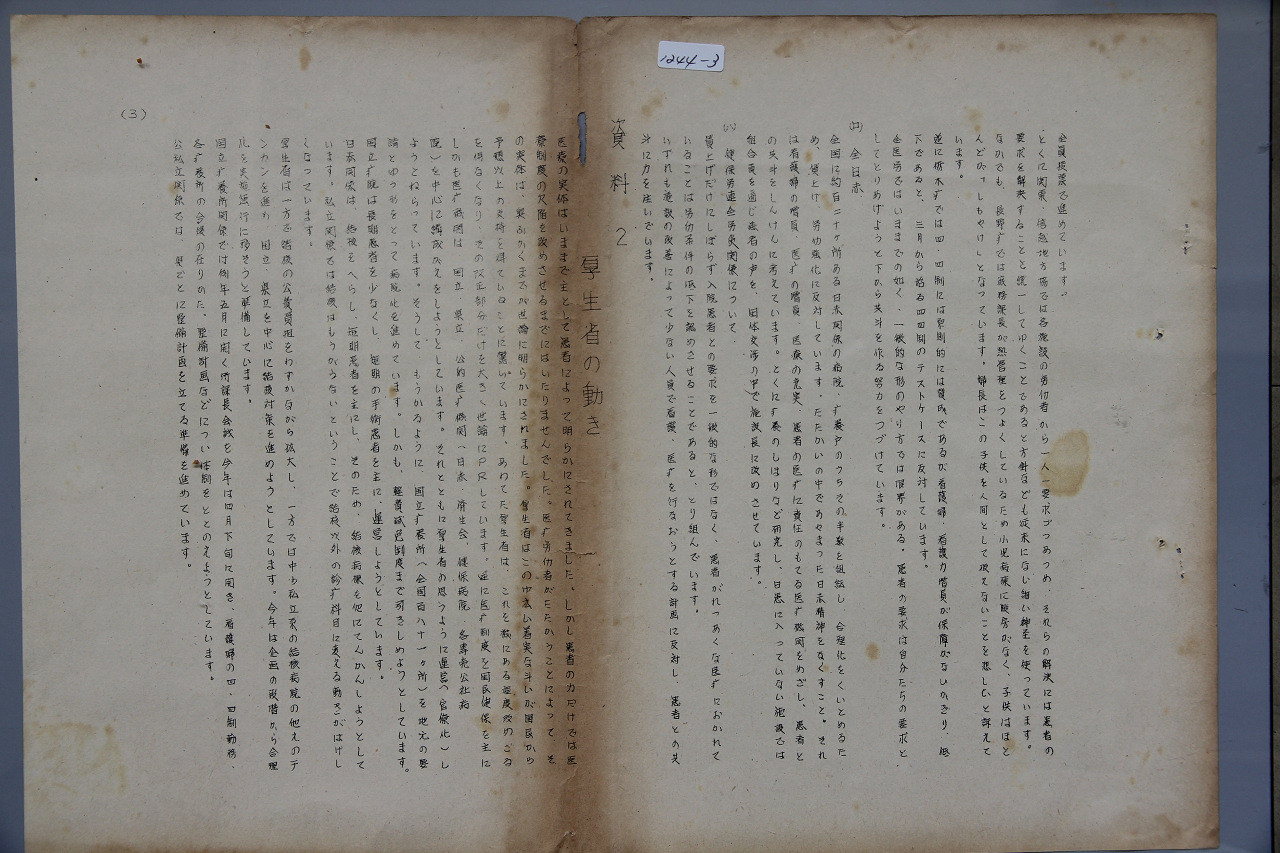 1244-3
全員提案で進めています。
とくに関東、信越地方協では各施設の労仂者から一人一要求づつあつめ、それらの解決には患者の
要求を解決することと統一してゆくことであると方針なども従来にない細い神圣を使っています。
なかでも、長野疒では庶務課長が熱管理をつよくしているため小児病棟に暖房がなく、子供はほと
んどが、「しもやけ」となっています。婦長はこの子供を人間として扱えないことを悲しむと訴えて
います。
逆に栃木疒では四・四制には原則的には賛成であるが看護婦・看護力増員が保障がないかぎり、
下であると、三月から始る四四制のテストケースに反対しています。
全医労ではいままでの如く、一般的な形のやり方では限界がある。患者の要求は自分たちの要求と
してとりあげようと下から共斗を作る努力をつづけています。
(ロ) 全日赤
全国に約百二十ヶ所ある日赤関係の病院、疒養所のうちその半数を組織し、合理化をくいとめるた
め、賃上げ、労仂強化に反対しています。たたかいの中であやまった日赤精神をなくすこと。それ
は看護婦の増員、医疒の増員、医療の充実、患者の医疒に責任のもてる医疒機関をめざし、患者と
の共斗をしんけんに考えています。とくに疒養のしほりなど研究し、日患に入っていない施設では
組合費を通じ患者の声を、団体交渉の中で施設長に改めさせています。
(ハ) 健保労連全労災関係について、
賃上げだけにしぼらず入院患者との要求を一般的な形ではなく、患者がれつあくな医疒におかれて
いることは労仂条件の低下を認めさせることであると、とり組んでいます。
いずれも施設の改善によって少ない人員で看護、医疒を行なおうとする計画に反対し、患者との共
斗に力を注いでいます。
資料 2
厚生省の動き
医療の実体はいままで主として患者によって明らかにされてきました。しかし患者の力だけでは医
療制度の欠陥を改めさせるまでにはいたりませんでした。医疒労仂者がたたかうことによって、そ
の実体は、奥ふかくまでが世論に明らかにされました。厚生省はこの巾広い着実な斗いが国民から
予想以上の支持を得ていることに驚いています。あわてた厚生省は、これを機にある程度改めざる
を得なくなり、その改正部分だけを大きく世論にPRしています。逆に医疒制度を国民健保を主に
しかも医疒機関は、国立、県立、公的医疒機関(日赤、済生会、健保病院、各専売公社病
院)を中心に編成がえをしようとしています。それとともに厚生省の思うように運営(官僚化)し
ようとねらっています。そうして、もうかるように、国立疒養所(全国百八十一ヶ所)を地元の要
請とゆう形をとって病院化を進めています。しかも、軽費減免制度まで引きしめようとしています。
国立疒院は長期患者を少なくし、短期の手術患者を主に、運営しようとしています。
日赤関係は、結核をへらし、短期患者を主にし、そのため、結核病棟を他にてんかんしようとして
います。私立関係では結核はもうからないということで結核以外の診疒科目に変える動きがはげし
くなっています。
厚生省は一方で結核の公費負担をわずかながら拡大し、一方では中小私立系の結核病院の他えのテ
ンカンを進め、国立、県立を中心に結核対策を進めようとしています。今年は企画の段階から合理
化を実施施行に移そうと準備しています。
国立疒養所関係では例年五月に開く付課長会議を今年は四月下旬に開き、看護婦の四・四制勤務、
各疒養所の今後の在りかた、整備計画などについ体制をととのえようとしています。
公私立関係では、県ごとに整備計画を立てる準備を進めています。
(3)